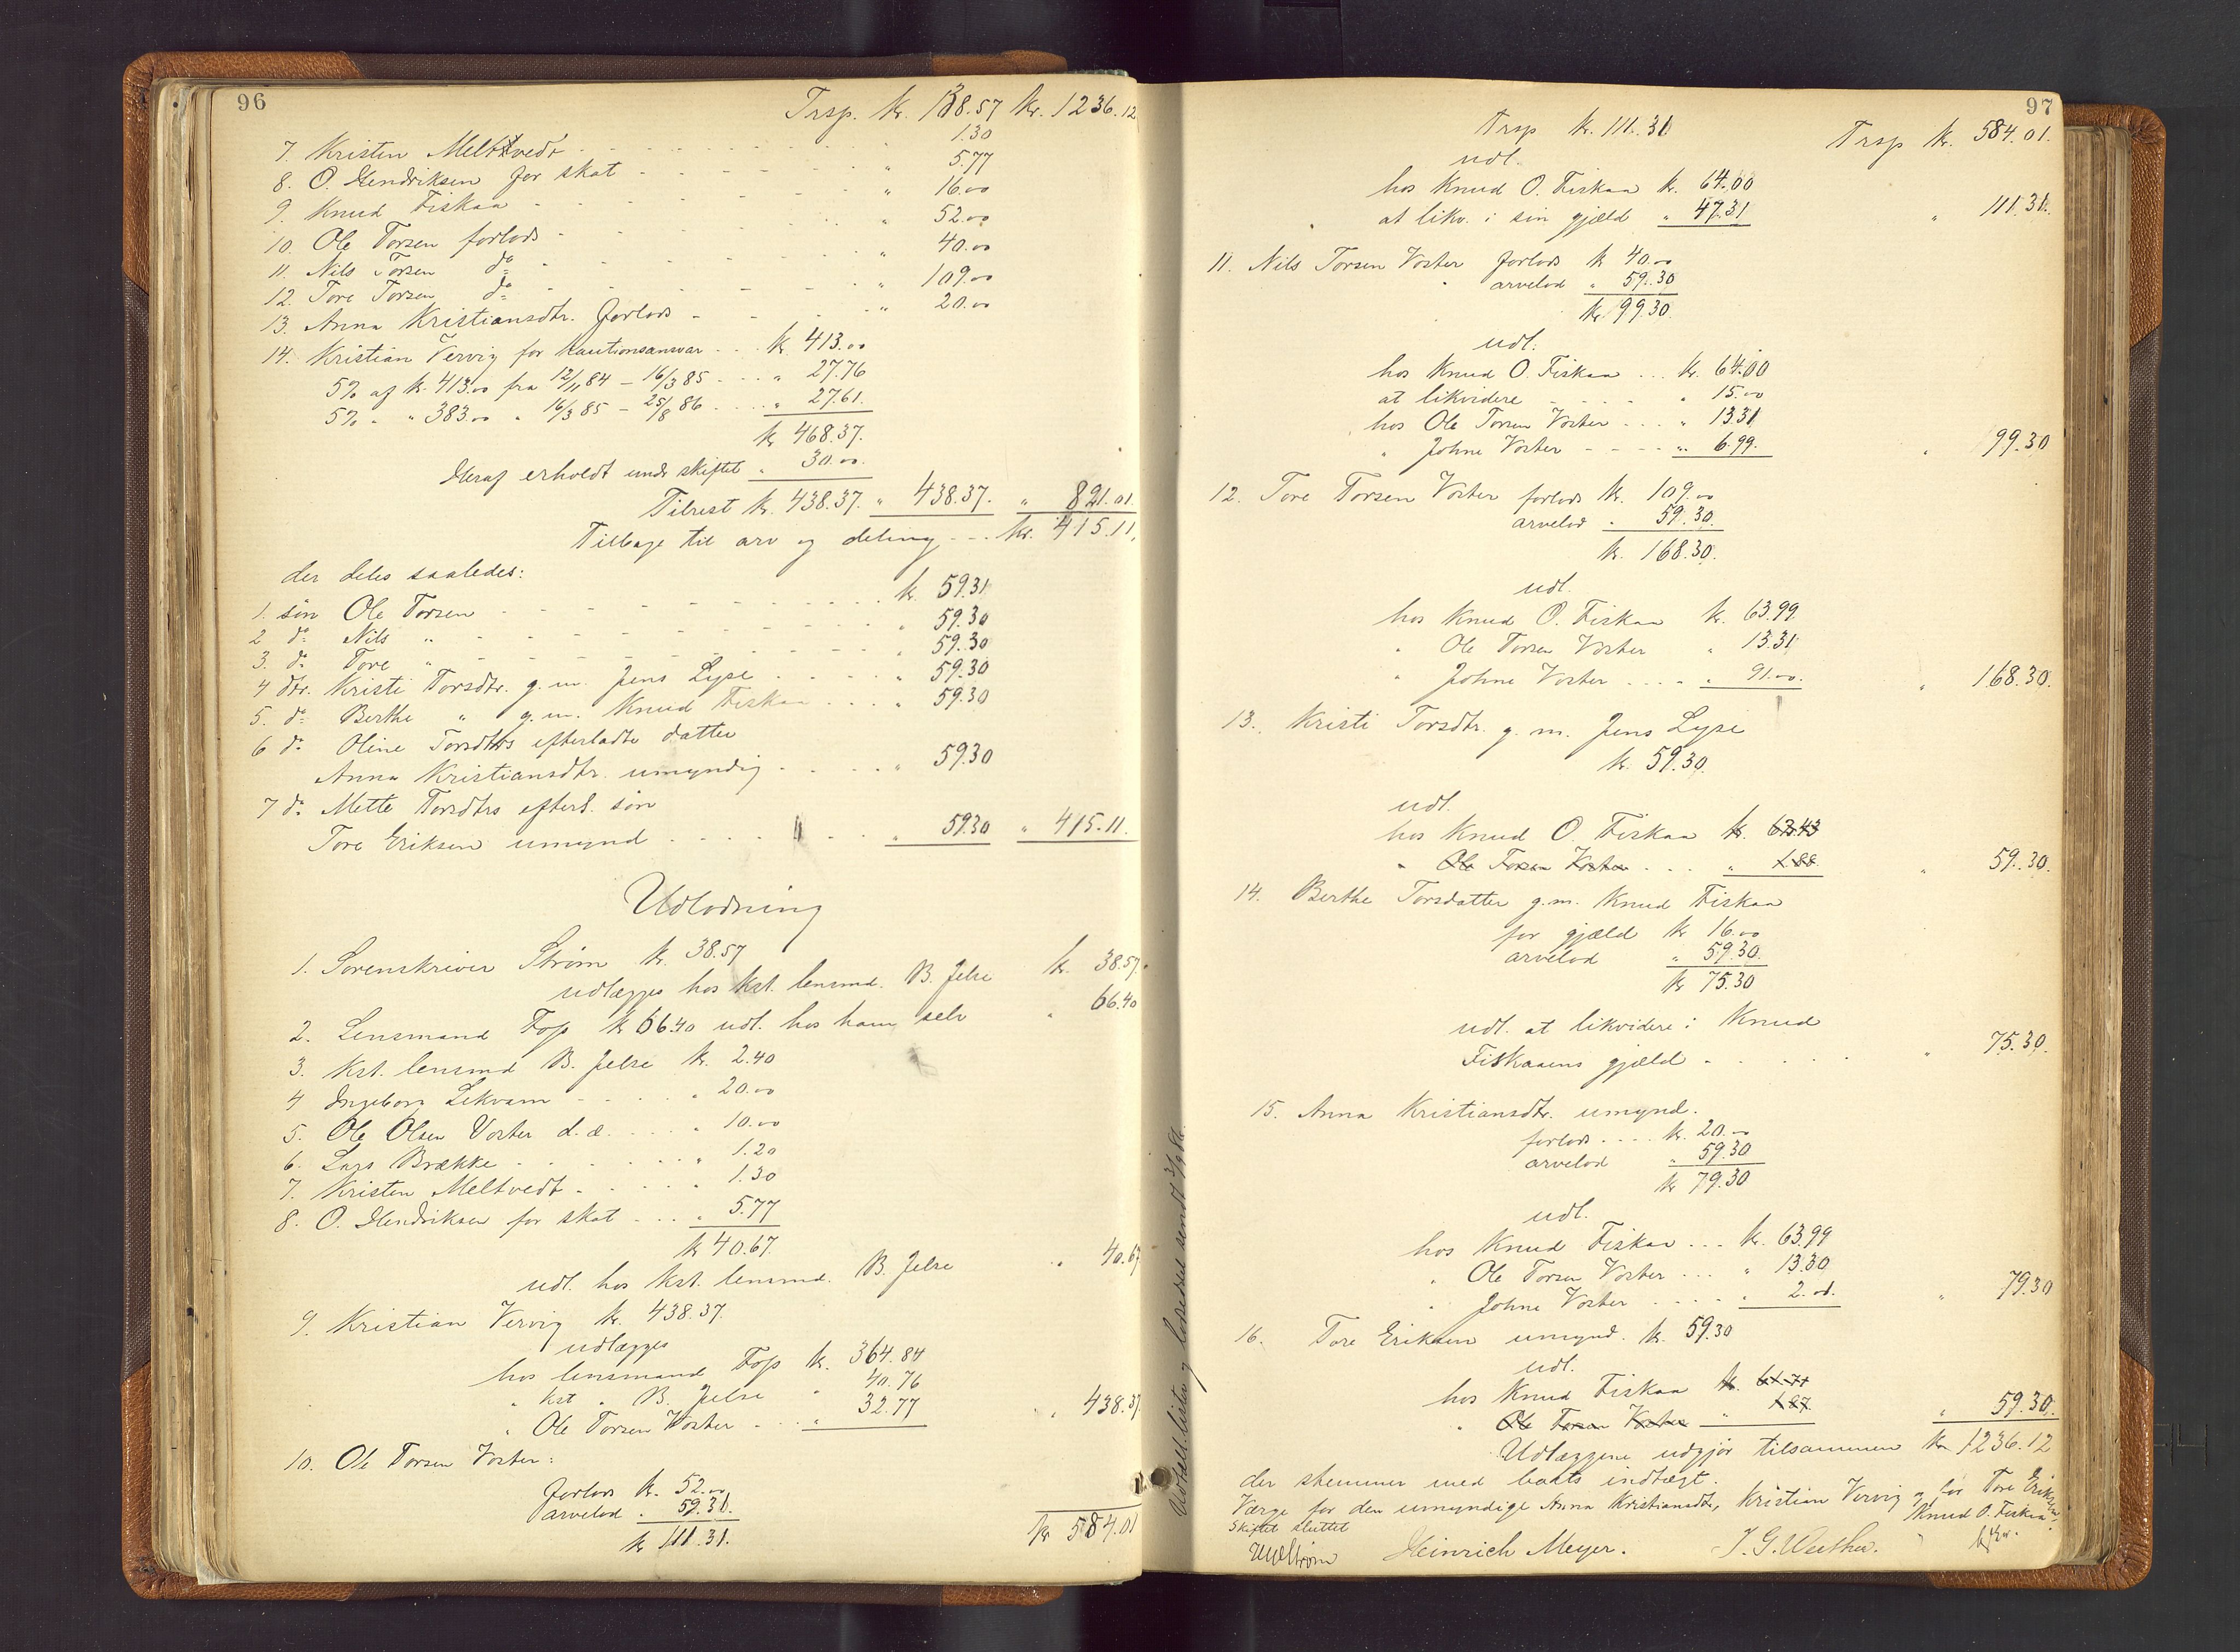 96
Trsp. kr. 138.57 kr. 1236.12
7. Kristen Meltvedt - - - 1.30
8. O. Hendriksen for skat - - - " 5.77
9. Knud Fiskaa - - - " 16.00
10. Ole Torsen forlods - - - " 52.00
11. Nils Torsen do - - - " 40.00
12. Tore Torsen do - - - " 109.00
13. Anna Kristiansdtr. forlods - - - " 20.00
14. Kristian Vervig for kautionsansvar - - kr. 413.00
5% af kr. 413.00 fra 12/11 84 - 16/3 85 - - - " 27.76
5% " " 383.00 " 16/3 85 - 25/8 86 - - - " 27.61
kr. 468.37.
Heraf erholdt under skiftet " 30.00.
Tilrest kr. 438.37. " 438.37. " 821.01
Tilbage til arv og deling - - - kr. 415.11,
der deles saaledes:
1. søn Ole Torsen - - - kr. 59.31
2 do Nils " - - - " 59.30
3. do Tore " - - - " 59.30
4 dtr. Kristi Torsdtr. g. m. Jens Lyse - - - " 59.30
5. do Berthe " g. m. Knud Fiskaa - - - " 59.30
6 do Oline Torsdtrs efterladte datter
Anna Kristiansdtr. umyndig - - - " 59.30
7 do Mette Torsdtrs efterl. søn
Tore Eriksen umynd - - - " 59.30 " 415.11.
Udlodning
1. Sorenskriver Strøm kr. 38.57
udlægges hos kst. lensmd. B. Jelse kr. 38.57.
2. Lensmand Fop kr. 66.40 udl. hos ham selv " 66.40
3. Kst. lensmd B. Jelse kr. 2.40
4 Ingeborg Lekvam - - - " 20.00
5. Ole Olsen Voster d. æ. - - - " 10.00
6. Lars Brække - - - " 1.20
7. Kristen Meltvedt - - - " 1.30
8. O. Hendriksen for skat - - - " 5.77
kr 40.67.
udl. hos kst. lensmd. B. Jelse " 40.67
9. Kristian Vervig kr. 438.37.
udlægges
hos lensmand Fop kr. 364.84
" kst " B. Jelse " 40.76
" Ole Torsen Voster - - - " 32.77 " 438.37
10. Ole Torsen Voster:
forlods kr. 52.00
arvelod " 59.31.
kr 111.31.
kr 584.01
Udtæll. lister og losseddel sendt 3/9 86.
97
Trsp kr. 111.31 Trsp kr. 584.01.
udl.
hos Knud O. Fiskaa kr. 64.00
at likv. i sin gjæld " 47.31 " 111.31.
11. Nils Torsen Voster forlods kr 40.00
" arvelod " 59.30
kr. 99.30.
udl.
hos Knud O. Fiskaa - - - kr. 64.00
at likvidere - - - " 15.00
hos Ole Torsen Voster - - - " 13.31
" Johne Voster - - - " 6.99. " 99.30
12. Tore Torsen Voster forlods kr. 109.00
arvelod " 59.30.
kr. 168.30.
udl.
hos Knud O. Fiskaa kr. 63.99.
" Ole Torsen Voster " 13.31
" Johne Voster - - - " 91.00. " 168.30.
13. Kristi Torsdtr. g. m. Jens Lyse
kr. 59.30.
udl.
hos Knud O. Fiskaa kr.
" Ole Torsen Voster - - - " 1.88 " 59.30.
14. Berthe Torsdatter g. m. Knud Fiskaa
for gjæld kr 16.00
arvelod " 59.30.
kr 75.30
udl. at likvidere i Knud
Fiskaaens gjæld - - - " 75.30.
15. Anna Kristiansdtr. umynd.
forlods - - - kr. 20.00
arvelod " 59.30
kr 79.30
udl.
hos Knud Fiskaa - - - kr. 63.99
" Ole Torsen Voster - - - " 13.30
" Johne Voster - - - " 2.01. " 79.30
16. Tore Eriksen umynd. kr. 59.30
udl.
hos Knud Fiskaa kr.
" Ole Torsen Voster " 1.87 " 59.30.
Udlæggene udgjør tilsammen kr 1236.12
der stemmer med boets indtægt.
Værge for den umyndige Anna Kristiansdtr, Kristian Vervig og for Tore Eriksen,
Knud O. Fiskaa.
Skiftet sluttet
Strøm Heinrich Meyer.